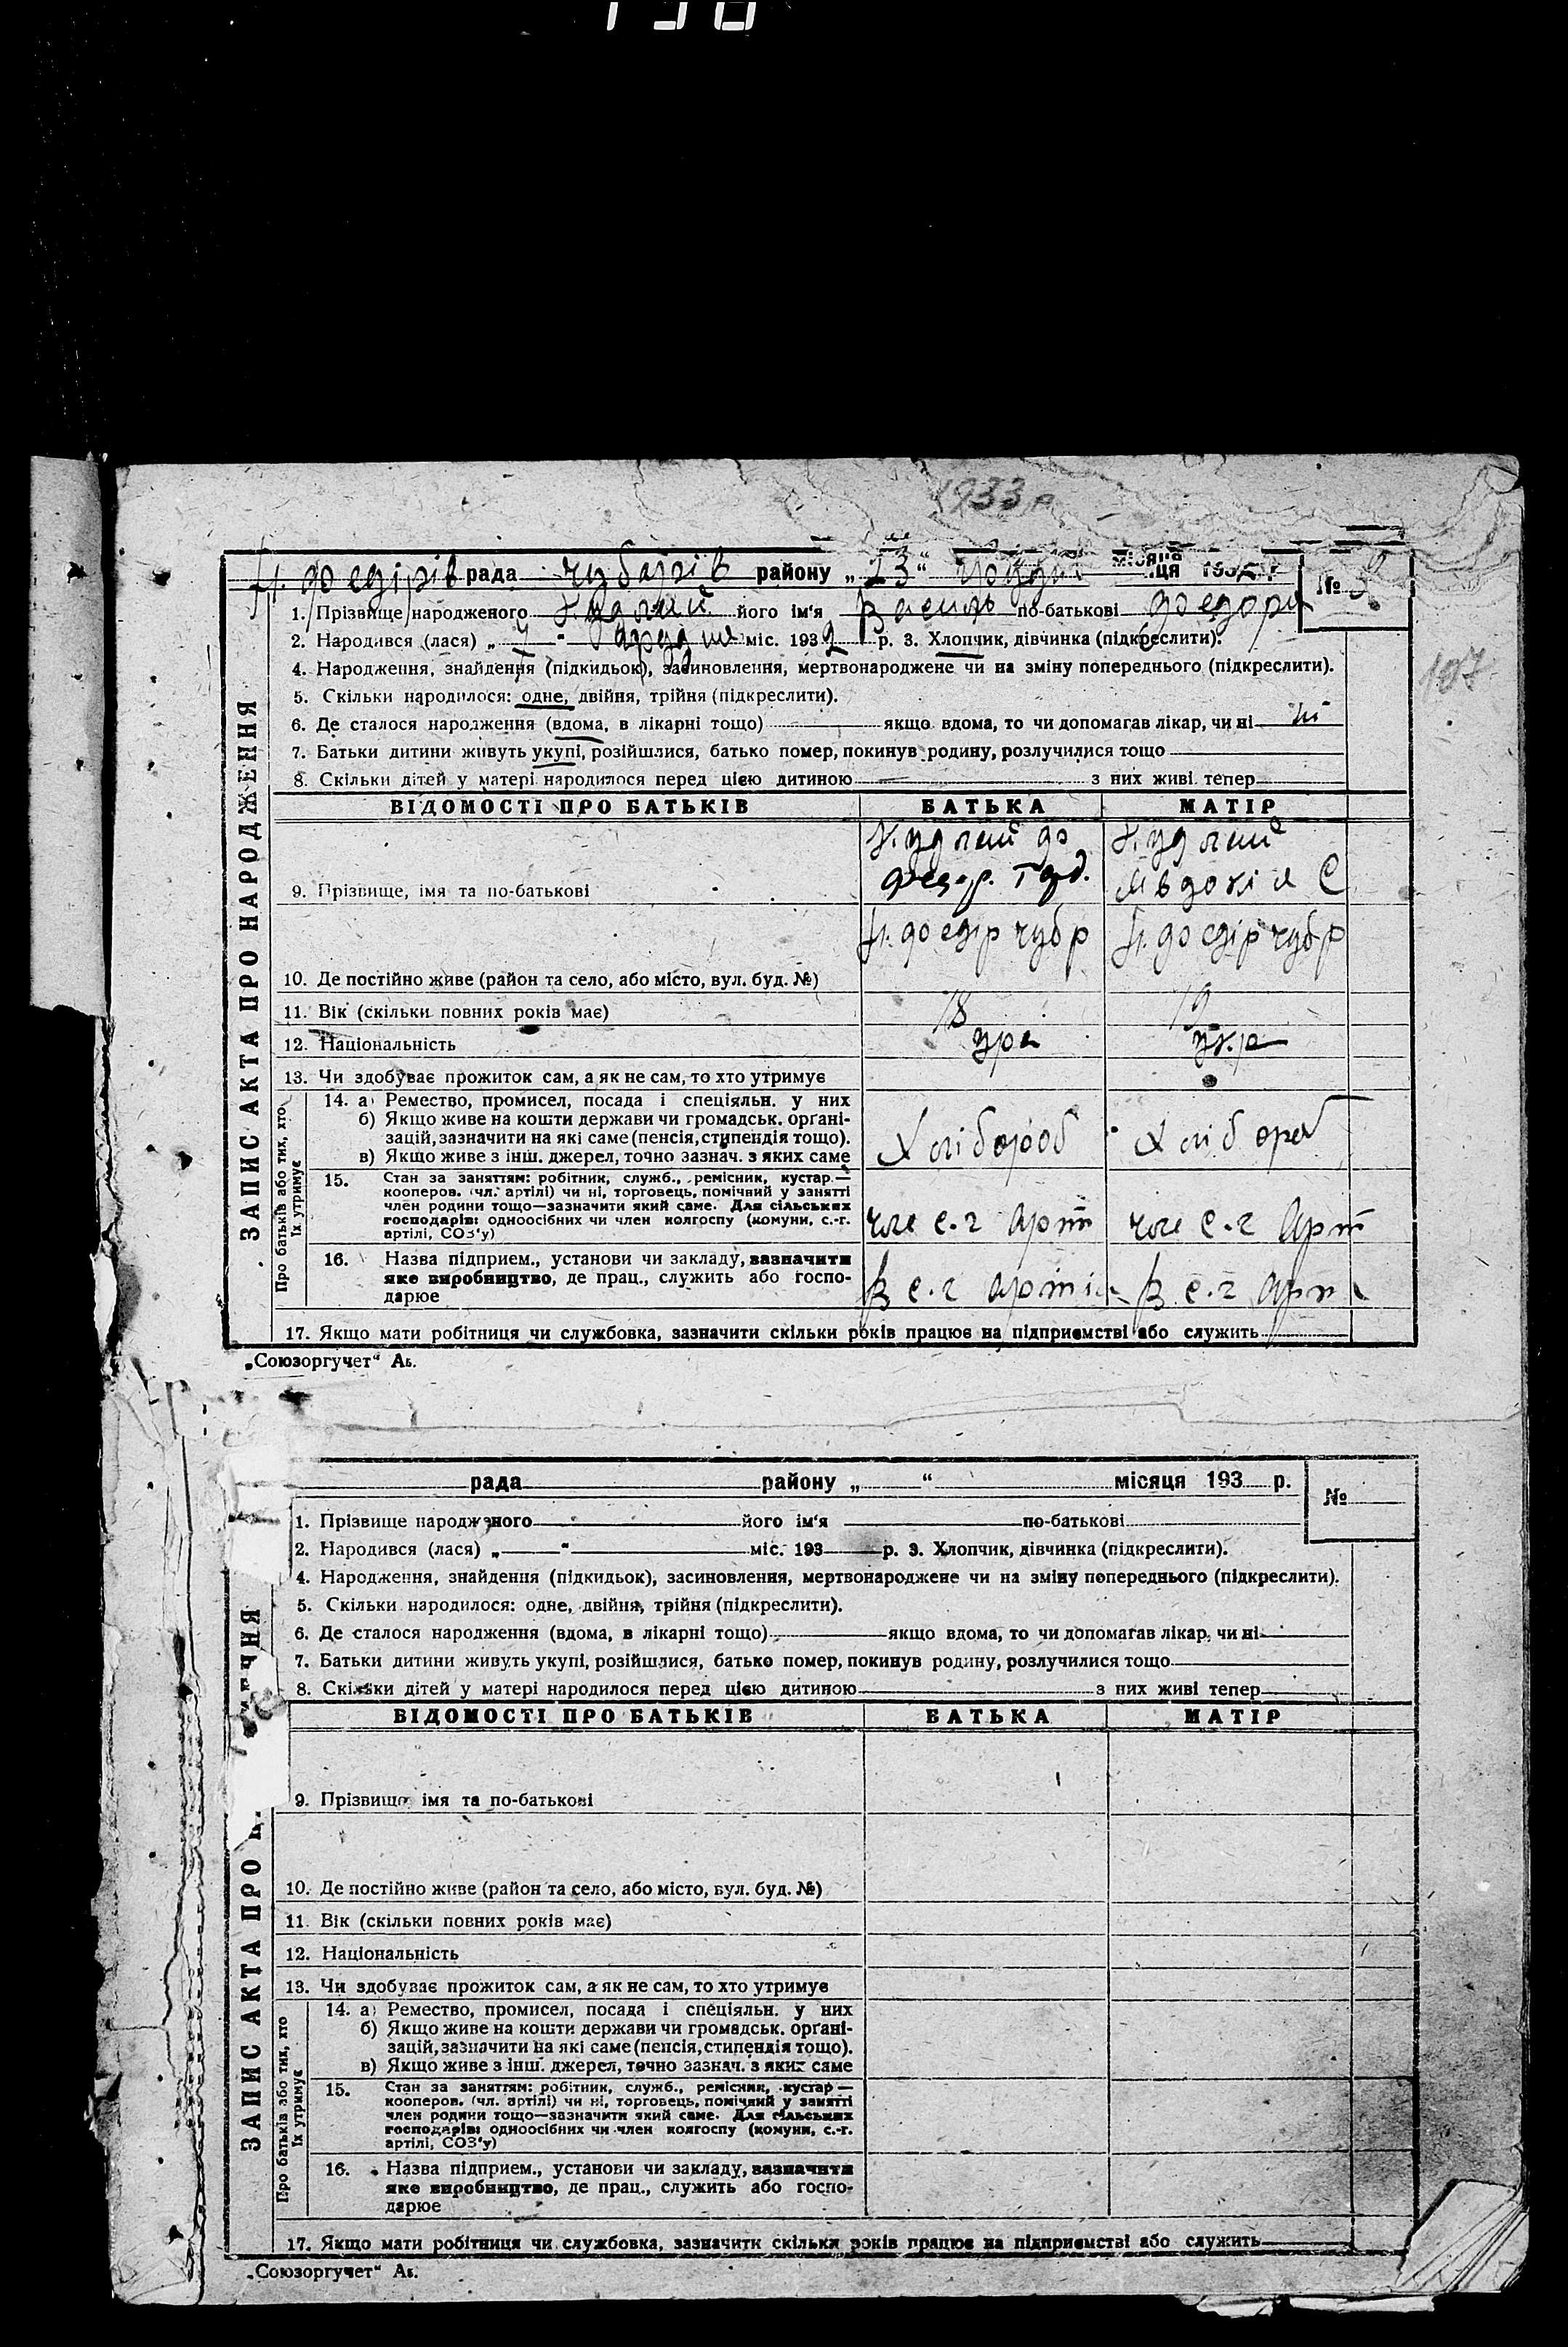 1933 р
рада чубарів району „23“ грудня місяця 1932 р. №
1. Прізвище народженого Кудлай його ім'я Василь по-батькові
2. Народився (лася) „ “ міс. 1932 р. 3. Хлопчик, дівчинка (підкреслити).
4. Народження, знайдення (підкидьок), засиновлення, мертвонароджене чи на зміну попереднього (підкреслити).
107
5. Скільки народилося: одне, двійня, трійня (підкреслити).
6. Де сталося народження (вдома, в лікарні тощо) якщо вдома, то чи допомагав лікар, чи ні ні
7. Батьки дитини живуть укупі, розійшлися, батько помер, покинув родину, розлучилися тощо
8. Скільки дітей у матері народилося перед цією дитиною з них живі тепер
ЗАПИС АКТА ПРО НАРОДЖЕННЯ
ВІДОМОСТІ ПРО БАТЬКІВ БАТЬКА МАТІР
Кудлай Кудлай
9. Прізвище, імя та по-батькові Явдокія Є
10. Де постійно живе (район та село, або місто, вул. буд. №)
11. Вік (скільки повних років має) 18 19
12. Національність укр
13. Чи здобуває прожиток сам, а як не сам, то хто утримує
Про батьків або тих, хто їх утримує
14. а) Ремество, промисел, посада і спеціяльн. у них
б) Якщо живе на кошти держави чи громадськ. орґані-
зацій, зазначити на які саме (пенсія, стипендія тощо).
в) Якщо живе з інш. джерел, точно зазнач. з яких саме
Хлібороб Хлібороб
15. Стан за заняттям: робітник, служб., ремісник, кустар—
кооперов. (чл. артілі) чи ні, торговець, помічний у занятті
член родини тощо—зазначити який саме. Для сільських
господарів: одноосібних чи член колгоспу (комуни, с.-г.
артілі, СОЗ'у)
член с.г арт член с.г арт
16. Назва підприєм., установи чи закладу, зазначити
яке виробництво, де прац., служить або госпо-
дарює
В с.г арті В с.г арт
17. Якщо мати робітниця чи службовка, зазначити скільки років працює на підприємстві або служить
„Союзоргучет“ Аб.
рада району „ “ місяця 193 р. №
1. Прізвище народженого його ім'я по-батькові
2. Народився (лася) „ “ міс. 193 р. 3. Хлопчик, дівчинка (підкреслити).
4. Народження, знайдення (підкидьок), засиновлення, мертвонароджене чи на зміну попереднього (підкреслити).
5. Скільки народилося: одне, двійня, трійня (підкреслити).
6. Де сталося народження (вдома, в лікарні тощо) якщо вдома, то чи допомагав лікар, чи ні
7. Батьки дитини живуть укупі, розійшлися, батько помер, покинув родину, розлучилися тощо
8. Скільки дітей у матері народилося перед цією дитиною з них живі тепер
ЗАПИС АКТА ПРО
ВІДОМОСТІ ПРО БАТЬКІВ БАТЬКА МАТІР
9. Прізвище імя та по-батькові
10. Де постійно живе (район та село, або місто, вул. буд. №)
11. Вік (скільки повних років має)
12. Національність
13. Чи здобуває прожиток сам, а як не сам, то хто утримує
Про батьків або тих, хто їх утримує
14. а) Ремество, промисел, посада і спеціяльн. у них
б) Якщо живе на кошти держави чи громадськ. орґані-
зацій, зазначити на які саме (пенсія, стипендія тощо).
в) Якщо живе з інш. джерел, точно зазнач. з яких саме
15. Стан за заняттям: робітник, служб., ремісник, кустар—
кооперов. (чл. артілі) чи ні, торговець, помічний у занятті
член родини тощо—зазначити який саме. Для сільських
господарів: одноосібних чи член колгоспу (комуни, с.-г.
артілі, СОЗ'у)
16. Назва підприєм., установи чи закладу, зазначити
яке виробництво, де прац., служить або госпо-
дарює
17. Якщо мати робітниця чи службовка, зазначити скільки років працює на підприємстві або служить
„Союзоргучет“ Аб.